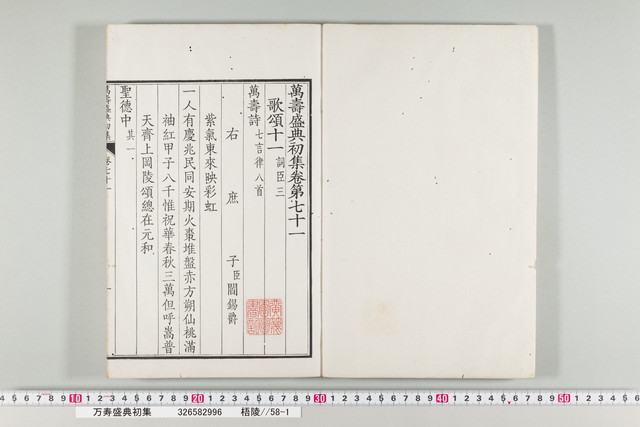 萬壽盛典初集卷第七十一
歌頌十一 詞臣三
萬壽詩 七言律八首
右庶子臣閻錫爵
紫氣東來映彩虹
一人有慶兆民同安期火棗堆盤赤方朔仙桃滿
袖紅甲子八千惟祝華春秋三萬但呼嵩普
天齊上岡陵頌總在元和
聖德中 其一
萬壽盛典初集 卷七十一 一
万寿盛典初集 326582996 梧陵//58-1